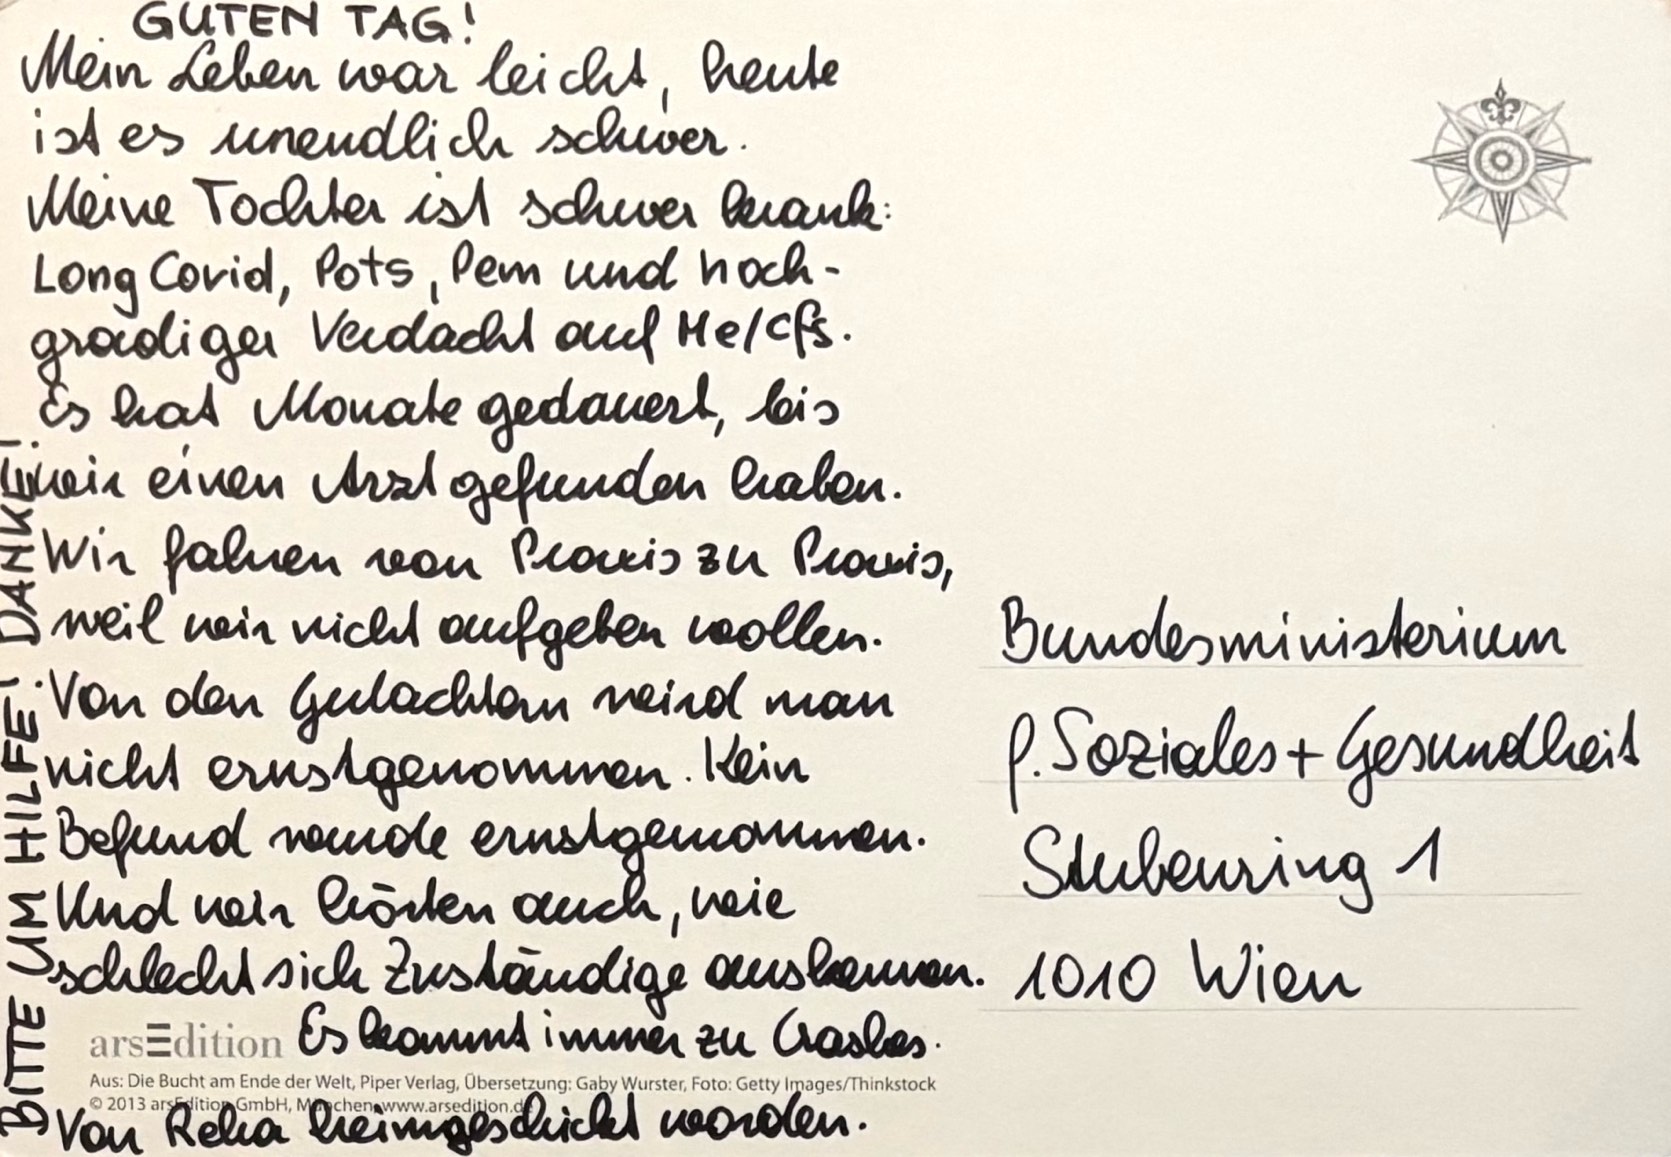 GUTEN TAG!
Mein Leben war leicht, heute
ist es unendlich schwer.
Meine Tochter ist schwer krank:
Long Covid, Pots, Pem und hoch-
gradiger Verdacht auf Me/cfs.
Es hat Monate gedauert, bis
wir einen Arzt gefunden haben.
Wir fahren von Praxis zu Praxis,
weil wir nicht aufgeben wollen.
Von den Gutachtern wird man
nicht ernstgenommen. Kein
Befund wurde ernstgenommen.
Und wir hörten auch, wie
schlecht sich Zuständige auskennen.
Es kommt immer zu Crashes.
Von Reha heimgeschickt worden.
BITTE UM HILFE! DANKE!
arsEdition
Aus: Die Bucht am Ende der Welt, Piper Verlag, Übersetzung: Gaby Wurster, Foto: Getty Images/Thinkstock
© 2013 arsEdition GmbH, München, www.arsedition.de
Bundesministerium
f. Soziales + Gesundheit
Stubenring 1
1010 Wien